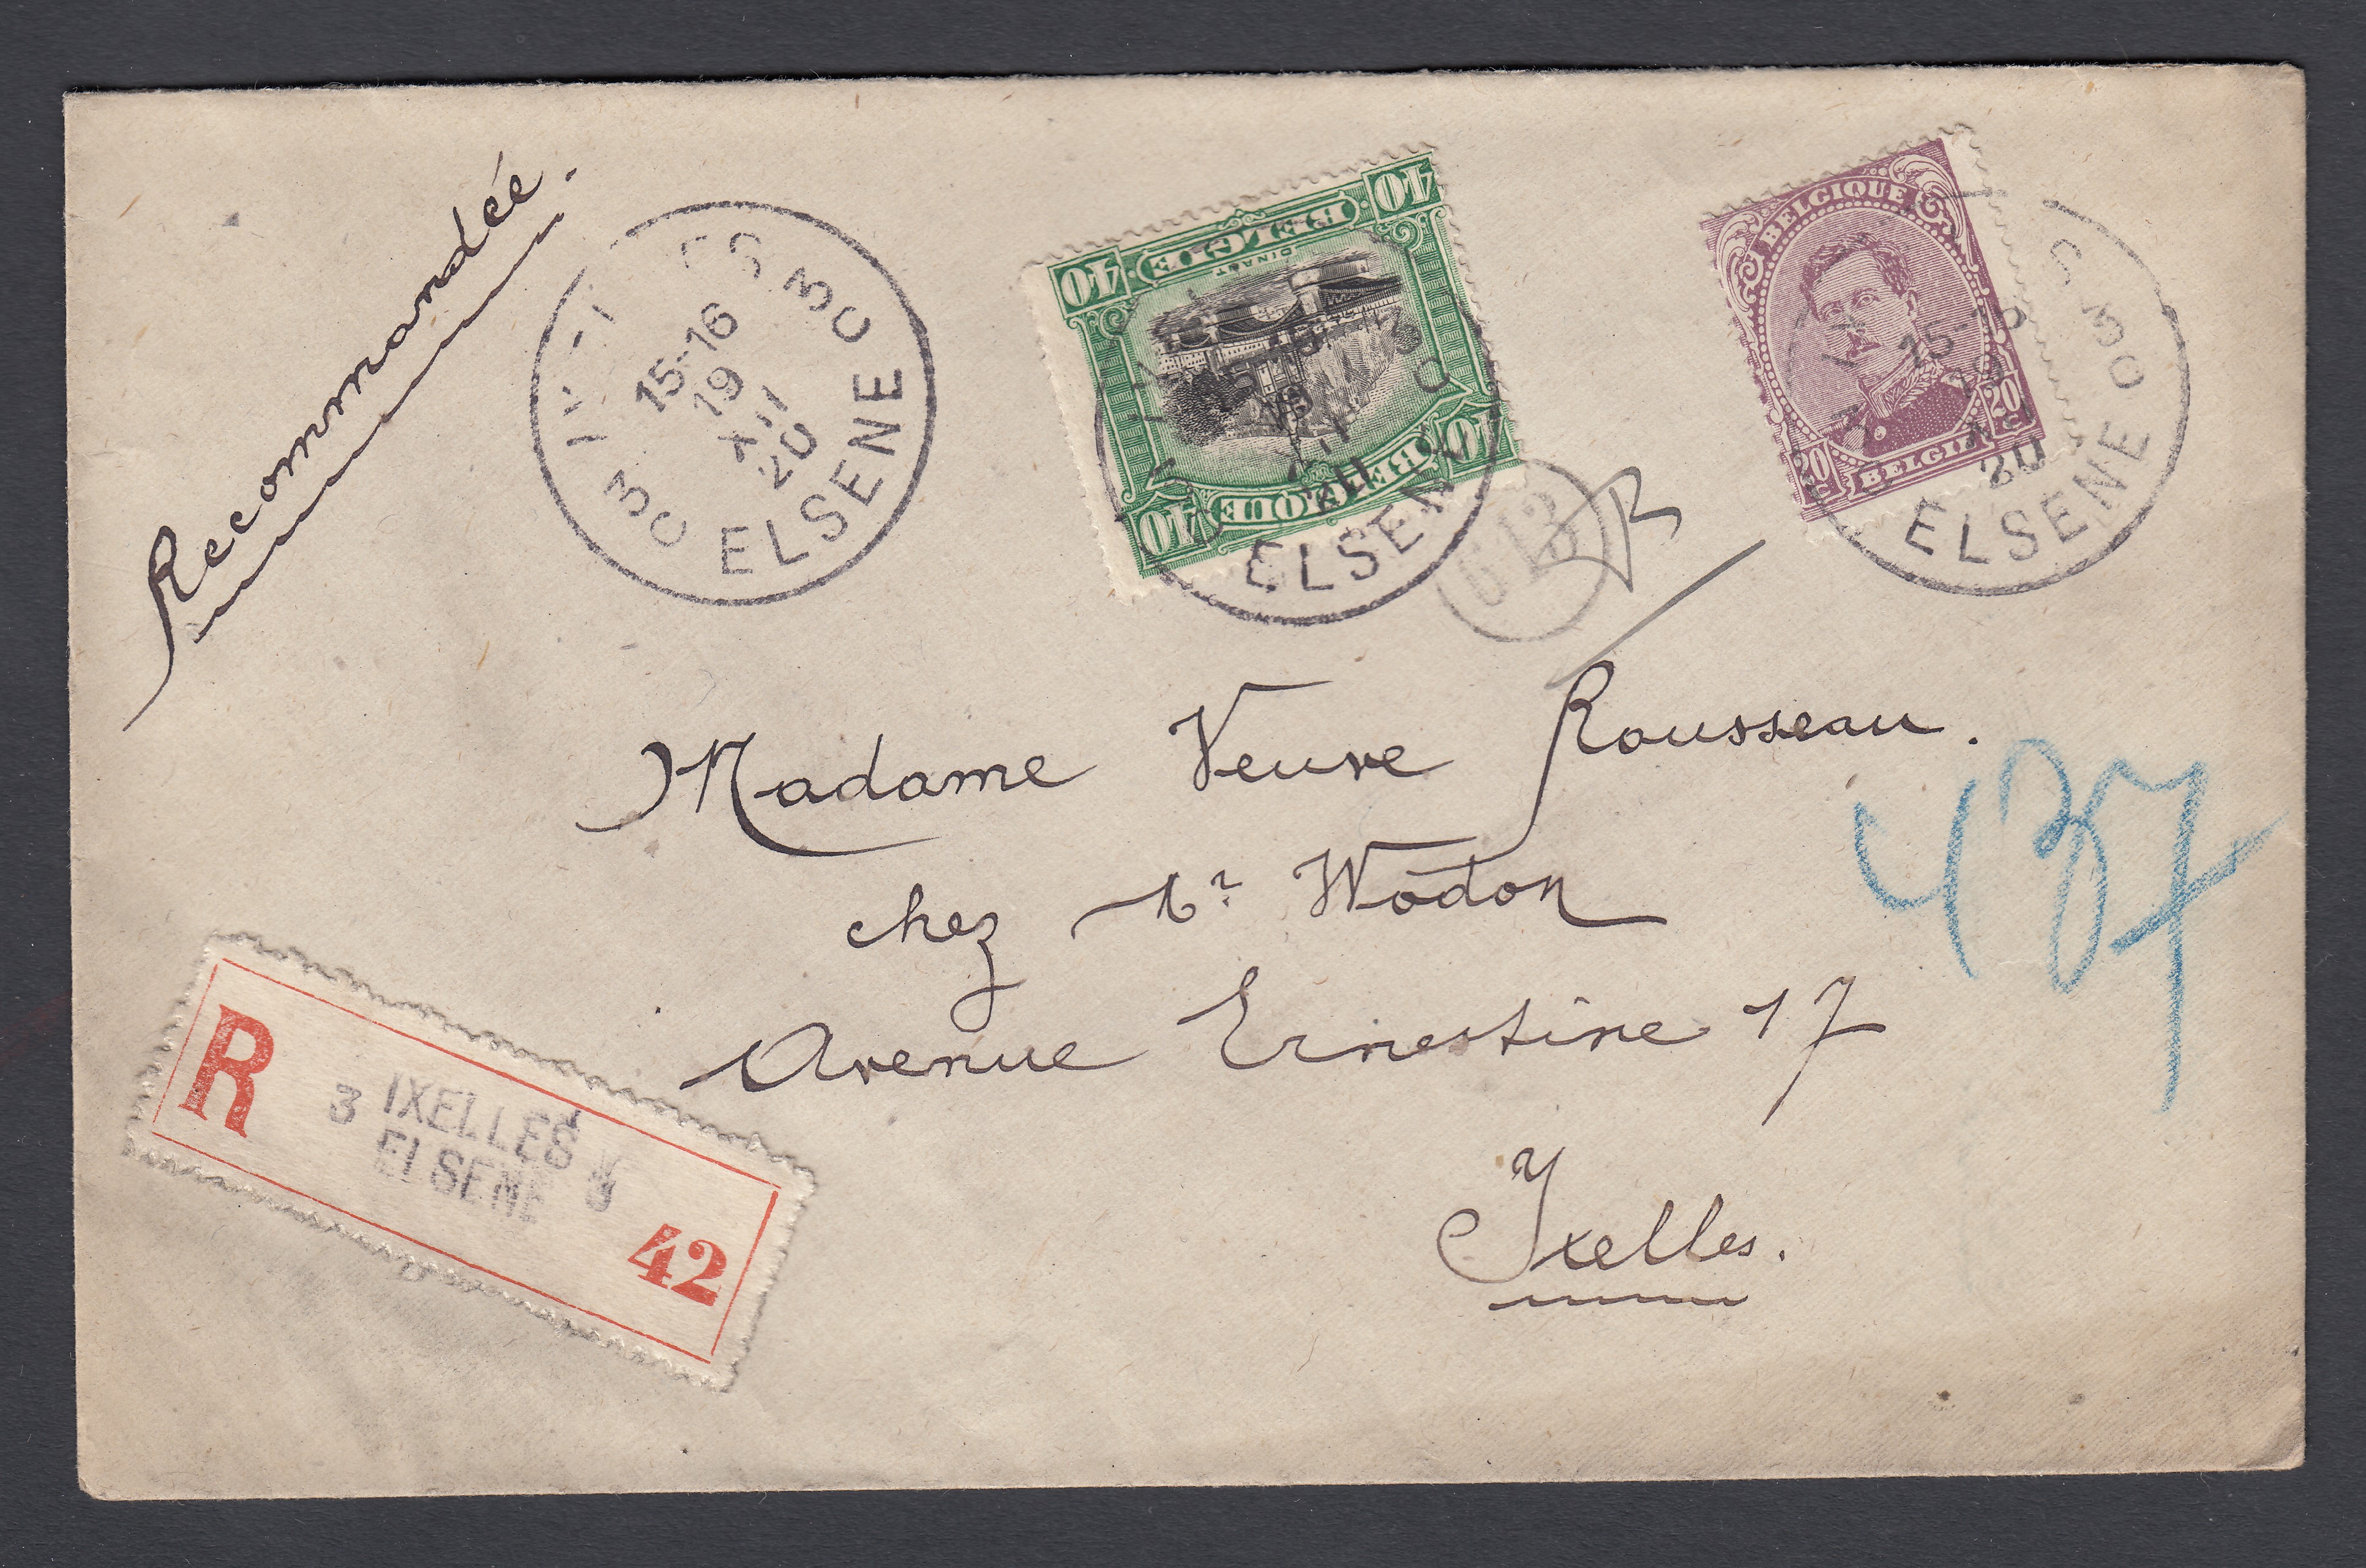 Recommandée.
3C ELSENE 3C
15-16
19
XII
20
40 BELGIE 40
DINANT
40 BELGIQUE 40
ELSENE
BELGIQUE
20 BELGIË 20
15-16
20
ELSENE
Madame Veuve Rousseau.
chez Mr Wodon
Avenue Ernestine 17
Ixelles.
437
R
3 IXELLES 3
ELSENE
42